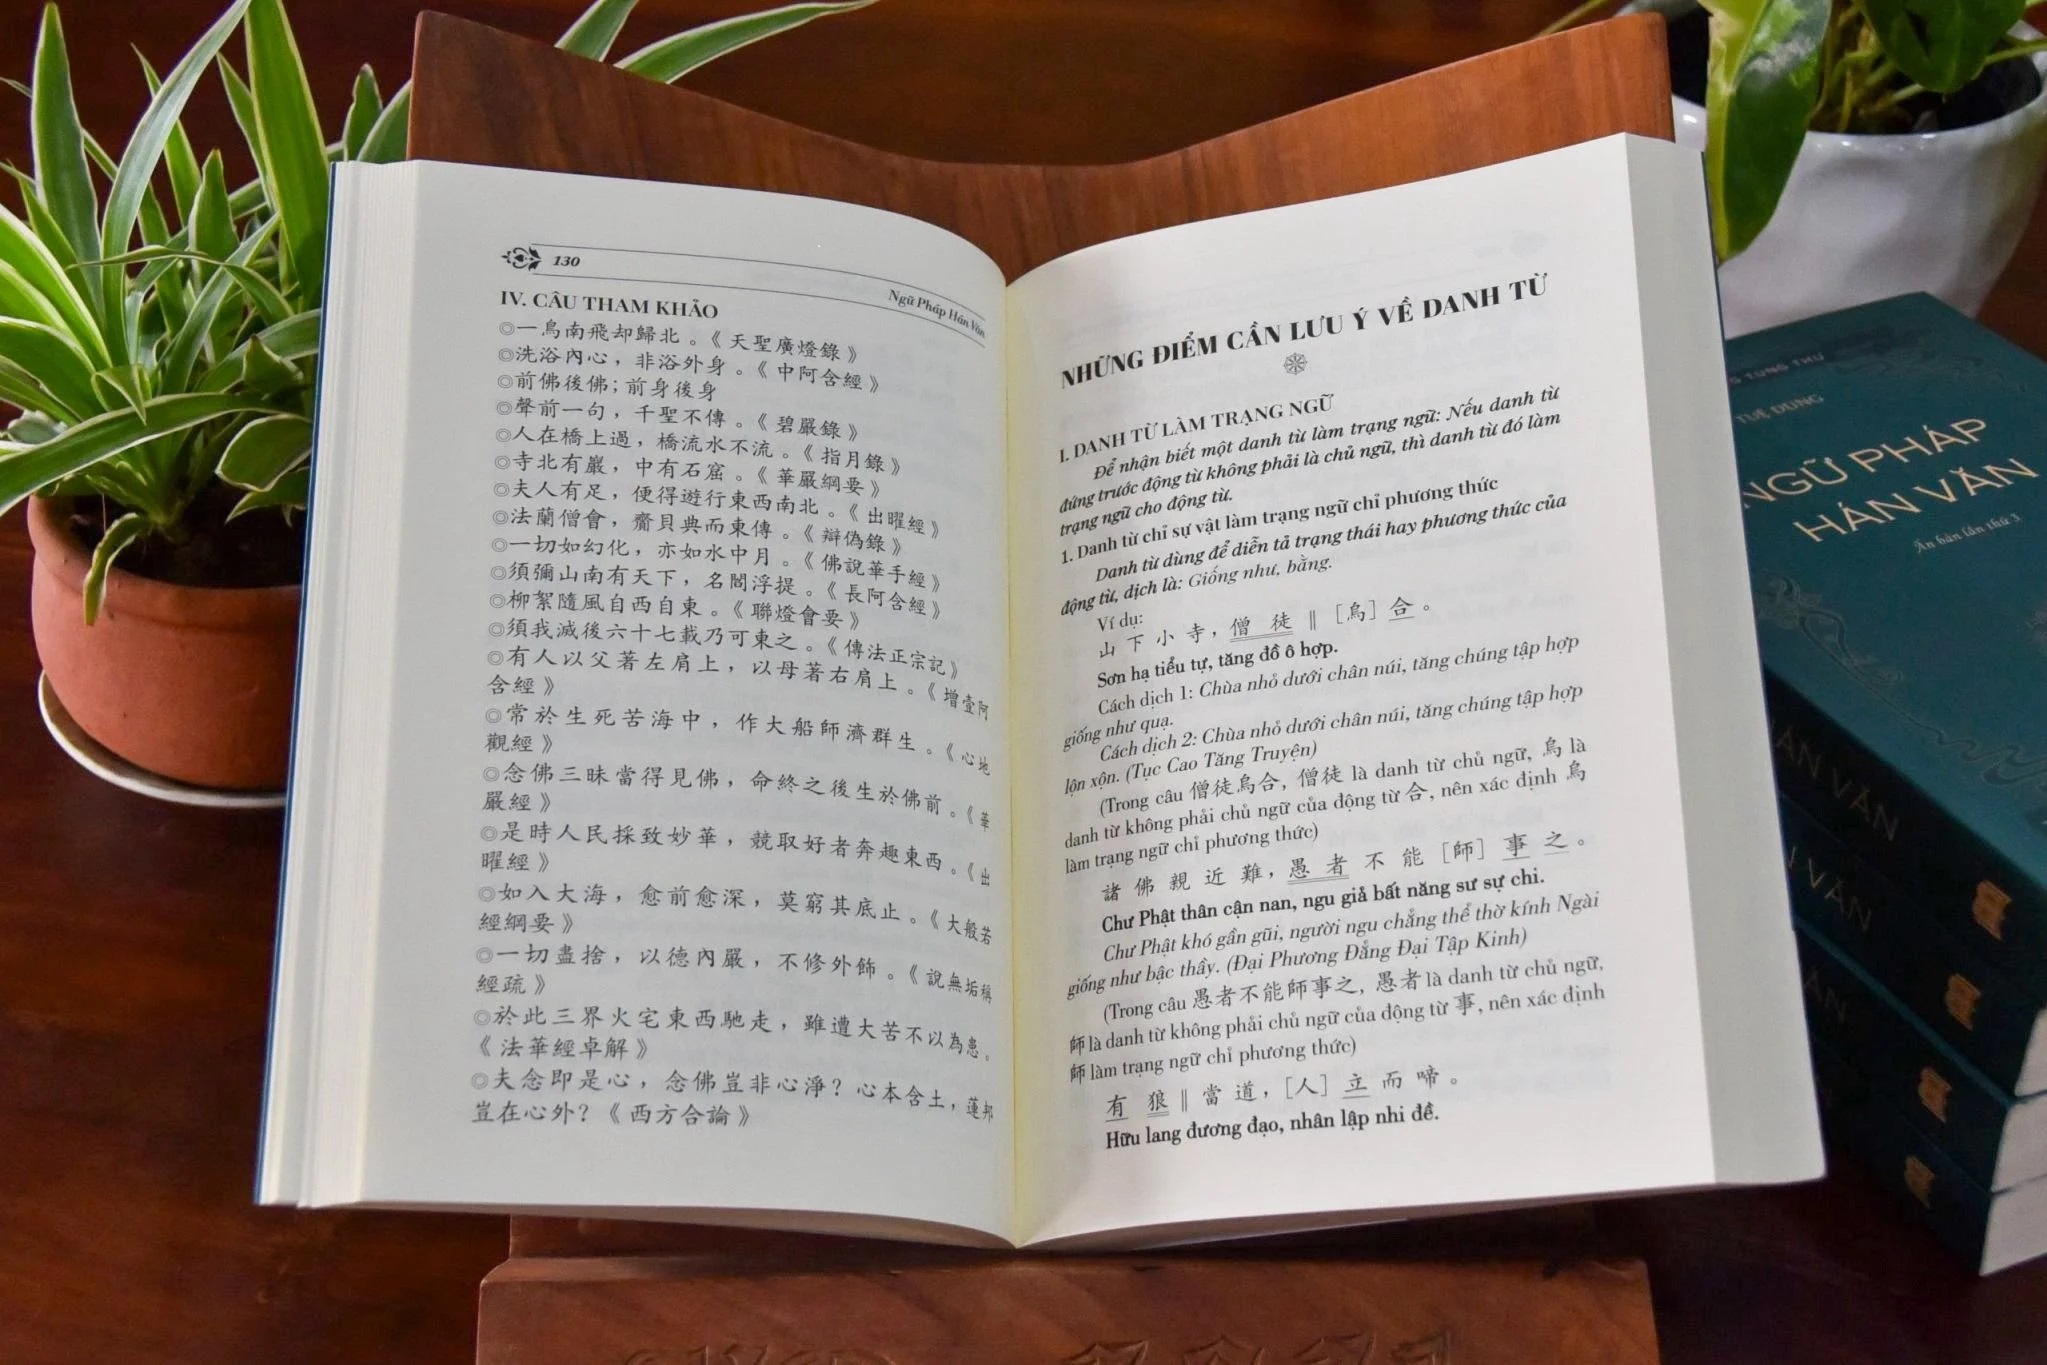 130
Ngữ Pháp Hán Văn
IV. CÂU THAM KHẢO
◎一鳥南飛却歸北。《天聖廣燈錄》
◎洗浴內心，非浴外身。《中阿含經》
◎前佛後佛；前身後身
◎聲前一句，千聖不傳。《碧嚴錄》
◎人在橋上過，橋流水不流。《指月錄》
◎寺北有巖，中有石窟。《華嚴綱要》
◎夫人有足，便得遊行東西南北。《出曜經》
◎法蘭僧會，齎貝典而東傳。《辯偽錄》
◎一切如幻化，亦如水中月。《佛說華手經》
◎須彌山南有天下，名閻浮提。《長阿含經》
◎柳絮隨風自西自東。《聯燈會要》
◎須我滅後六十七載乃可東之。《傳法正宗記》
◎有人以父著左肩上，以母著右肩上。《增壹阿
含經》
◎常於生死苦海中，作大船師濟群生。《心地
觀經》
◎念佛三昧當得見佛，命終之後生於佛前。《華
嚴經》
◎是時人民採致妙華，競取好者奔趣東西。《出
曜經》
◎如入大海，愈前愈深，莫窮其底止。《大般若
經綱要》
◎一切盡捨，以德內嚴，不修外飾。《說無垢稱
經疏》
◎於此三界火宅東西馳走，雖遭大苦不以為患。
《法華經卓解》
◎夫念即是心，念佛豈非心淨？心本含土，蓮邦
豈在心外？《西方合論》
NHỮNG ĐIỂM CẦN LƯU Ý VỀ DANH TỪ
I. DANH TỪ LÀM TRẠNG NGỮ
Để nhận biết một danh từ làm trạng ngữ: Nếu danh từ
đứng trước động từ không phải là chủ ngữ, thì danh từ đó làm
trạng ngữ cho động từ.
1. Danh từ chỉ sự vật làm trạng ngữ chỉ phương thức
Danh từ dùng để diễn tả trạng thái hay phương thức của
động từ, dịch là: Giống như, bằng.
Ví dụ:
山下小寺，僧徒 ‖ [烏] 合。
Sơn hạ tiểu tự, tăng đồ ô hợp.
Cách dịch 1: Chùa nhỏ dưới chân núi, tăng chúng tập hợp
giống như quạ.
Cách dịch 2: Chùa nhỏ dưới chân núi, tăng chúng tập hợp
lộn xộn. (Tục Cao Tăng Truyện)
(Trong câu 僧徒烏合, 僧徒 là danh từ chủ ngữ, 烏 là
danh từ không phải chủ ngữ của động từ 合, nên xác định 烏
làm trạng ngữ chỉ phương thức)
諸佛親近難，愚者不能 [師] 事之。
Chư Phật thân cận nan, ngu giả bất năng sư sự chi.
Chư Phật khó gần gũi, người ngu chẳng thể thờ kính Ngài
giống như bậc thầy. (Đại Phương Đẳng Đại Tập Kinh)
(Trong câu 愚者不能師事之, 愚者 là danh từ chủ ngữ,
師 là danh từ không phải chủ ngữ của động từ 事, nên xác định
師 làm trạng ngữ chỉ phương thức)
有狼 ‖ 當道，[人] 立而啼。
Hữu lang đương đạo, nhân lập nhi đề.
TÙNG THƯ
TUỆ DŨNG
NGỮ PHÁP
HÁN VĂN
Ấn bản lần thứ 3
HÁN VĂN
VĂN